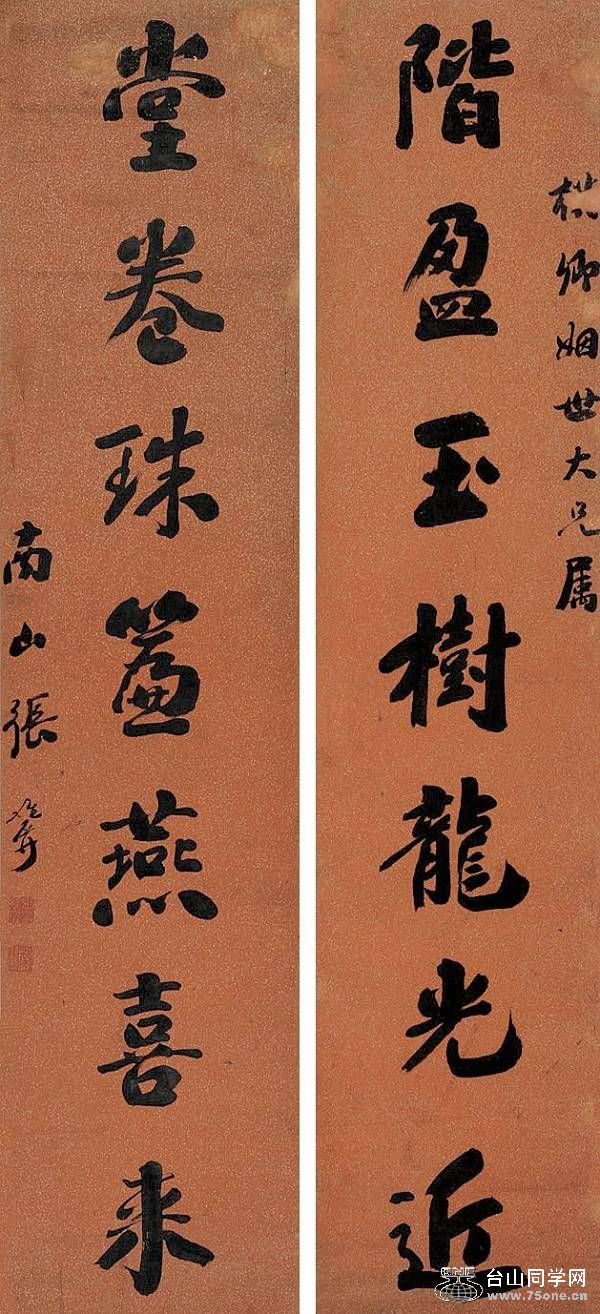 卿姻世大兄属
階盈玉樹龍光近
堂卷珠簾燕喜来
南山張維屏
台山同学网
www.75one.cn